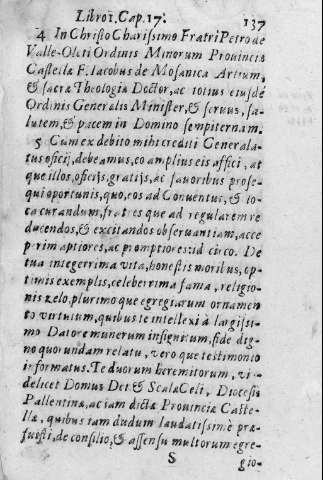 Libro1. Cap. 17. 137
4 In Christo Charissimo Fratri Petro de
Valle-Oleti Ordinis Minorum Prouinciæ
Castellæ F. Iacobus de Mosanica Artium,
& sacræ Theologiæ Doctor, ac totius eiusdẽ
Ordinis Generalis Minister, & seruus, sa-
lutem, & pacem in Domino sempiternam.
5 Cum ex debito mihi crediti Generala-
tus officij, debeamus, eo amplius eis affici, at
que illos, officijs, gratijs, ac fauoribus prose-
qui oportunis, quo, eos ad Conuentus, & lo-
ca curandum, fratres que ad regularem re
ducendos, & excitandos obseruantiam, acce
perim aptiores, ac promptiores: id circo. De
tua integerrima vita, honestis moribus, op-
timis exemplis, celeberrima fama, religio-
nis zelo, plurimo que egregiarum ornamen
to virtutum, quibus te intellexi à largissi-
mo Datore munerum insignitum, fide dig-
no quorundam relatu, vero que testimonio
informatus. Te duorum heremitorum, vi-
delicet Domus Dei & Scalæ Celi, Diocesis
Pallentinæ, ac iam dictæ Prouinciæ Caste-
llæ, quibus iam dudum laudatissimè præ-
fuisti, de consilio, & assensu multorum egre-
S gio-